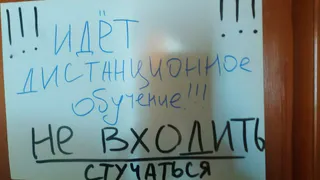 !!! !!!
ИДЁТ
ДИСТАНЦИОННОЕ
обучение!!!
НЕ ВХОДИТЬ
СТУЧАТЬСЯ